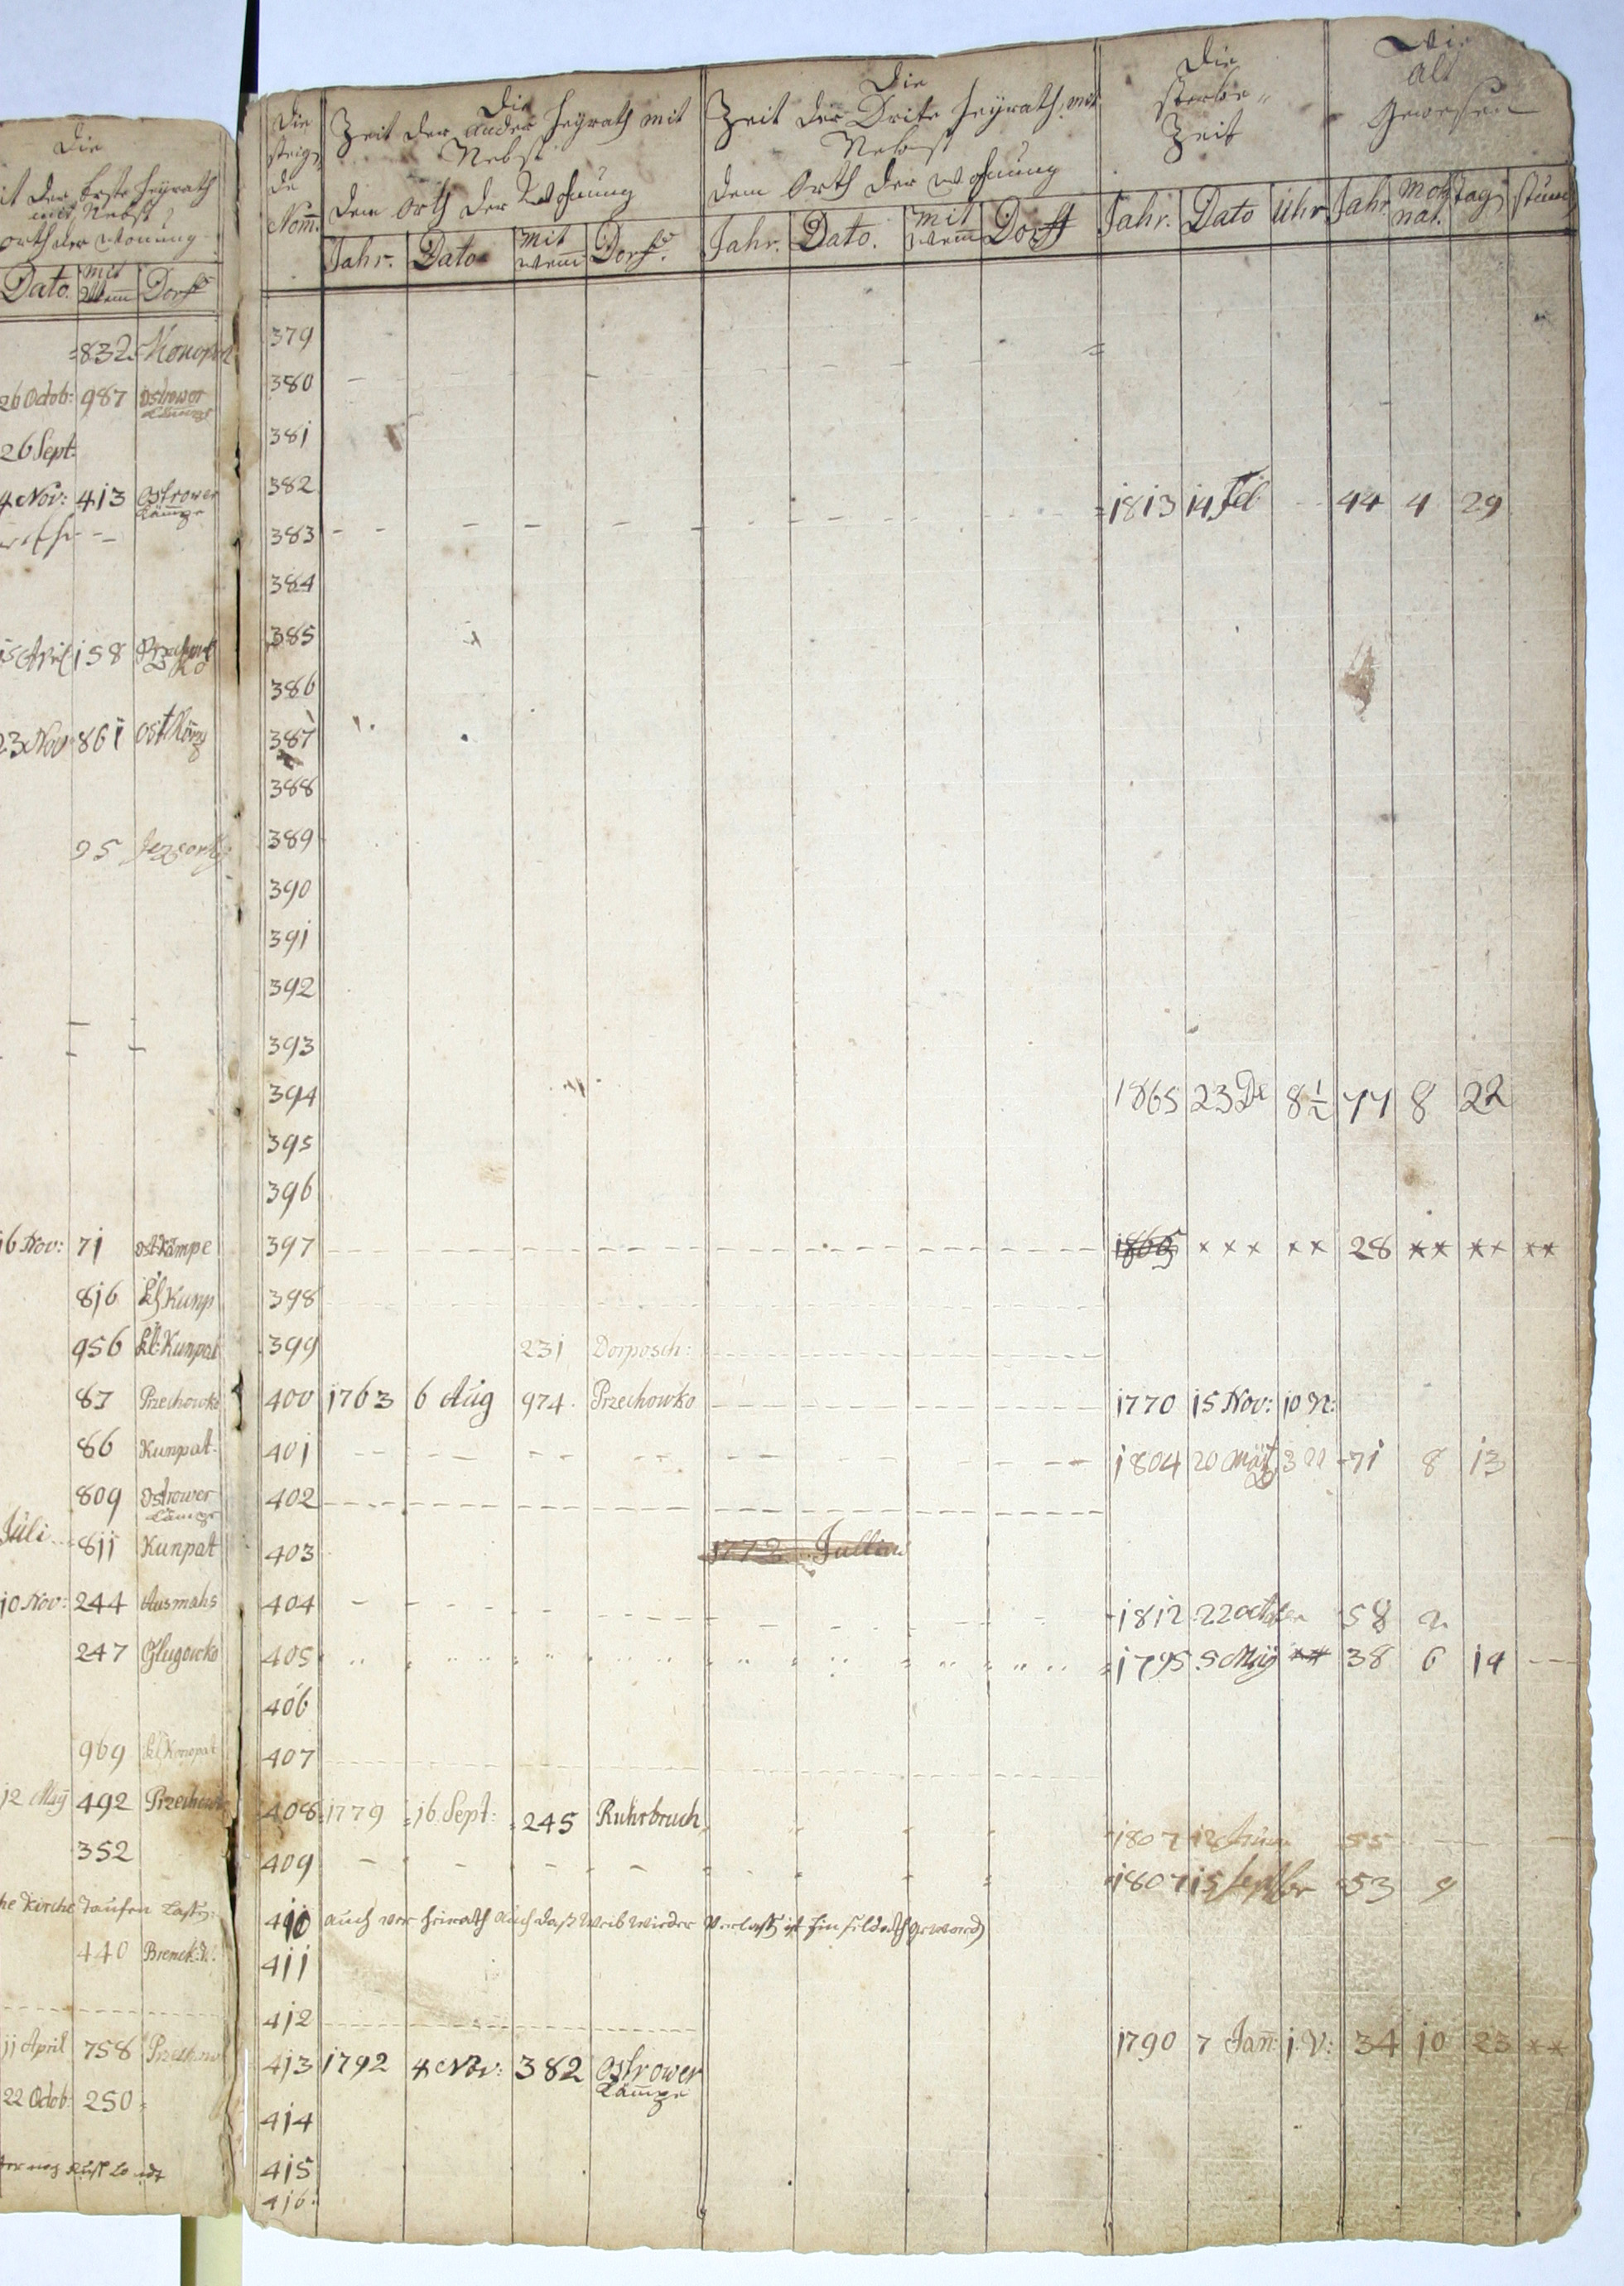 Die
Zeit der Erste Heÿrath
mit Nebst
orth der Wonung
Dato. mit Wem Dorff
832 Konopat
26 Octob: 987 Ostrower Kämpe
26 Sept:
4 Nov: 413 Ostrower Kämpe
15 April 158
23 Nov 861
95
16 Nov: 71 Ost Kämpe
816 Kl Kunp
956 Kl: Kunpat
87 Przechowko
86 Kunpat.
809 Ostrower Kämpe
Juli 811 Kunpat
10 Nov: 244 Ausmahs
247 Glugowko
969 Kl Konopat
12 Maÿ 492 Przechow
352
he Kirche Taufen Lassen:
440 Brenck:
11 April 758 Przechow
22 Octob: 250
Die steigende Nom̄.
Die Zeit der ander Heÿrath mit Nebst dem Orth der Wohnung
Die Zeit der Drite Heÿrath mit Nebst dem Orth der Wohnung
Die sterbe Zeit
Wie alt Gewesen
Jahr. Dato mit wem Dorff. Jahr. Dato. mit wem Dorff Jahr. Dato Uhr Jahr Monat. tag stund
379
380
381
382 1813 14 Feb 44 4 29
383
384
385
386
387
388
389
390
391
392
393
394 1865 23 De 8½ 77 8 22
395
396
397 1865 x x x x x 28 x x x x x x
398
399 231 Dorposch:
400 1763 6 Aug 974 Przechowko 1770 15 Nov: 10 N:
401 1804 20 Maÿ 3 71 8 13
402
403 1772
404 1812 22 october 58 2
405 1795 5 Maÿ x x 38 6 14
406
407
408 1779 16 Sept: 245 Ruhrbruch 1807 12 55
409 1807 15 septbr 53 9
410 auch ver heirath auch daß Weib wieder Verlaßt ist
411
412
413 1792 4 Nov: 382 Ostrower Kämpe 1790 7 Jan: 1 V: 34 10 23 x x
414
415
416